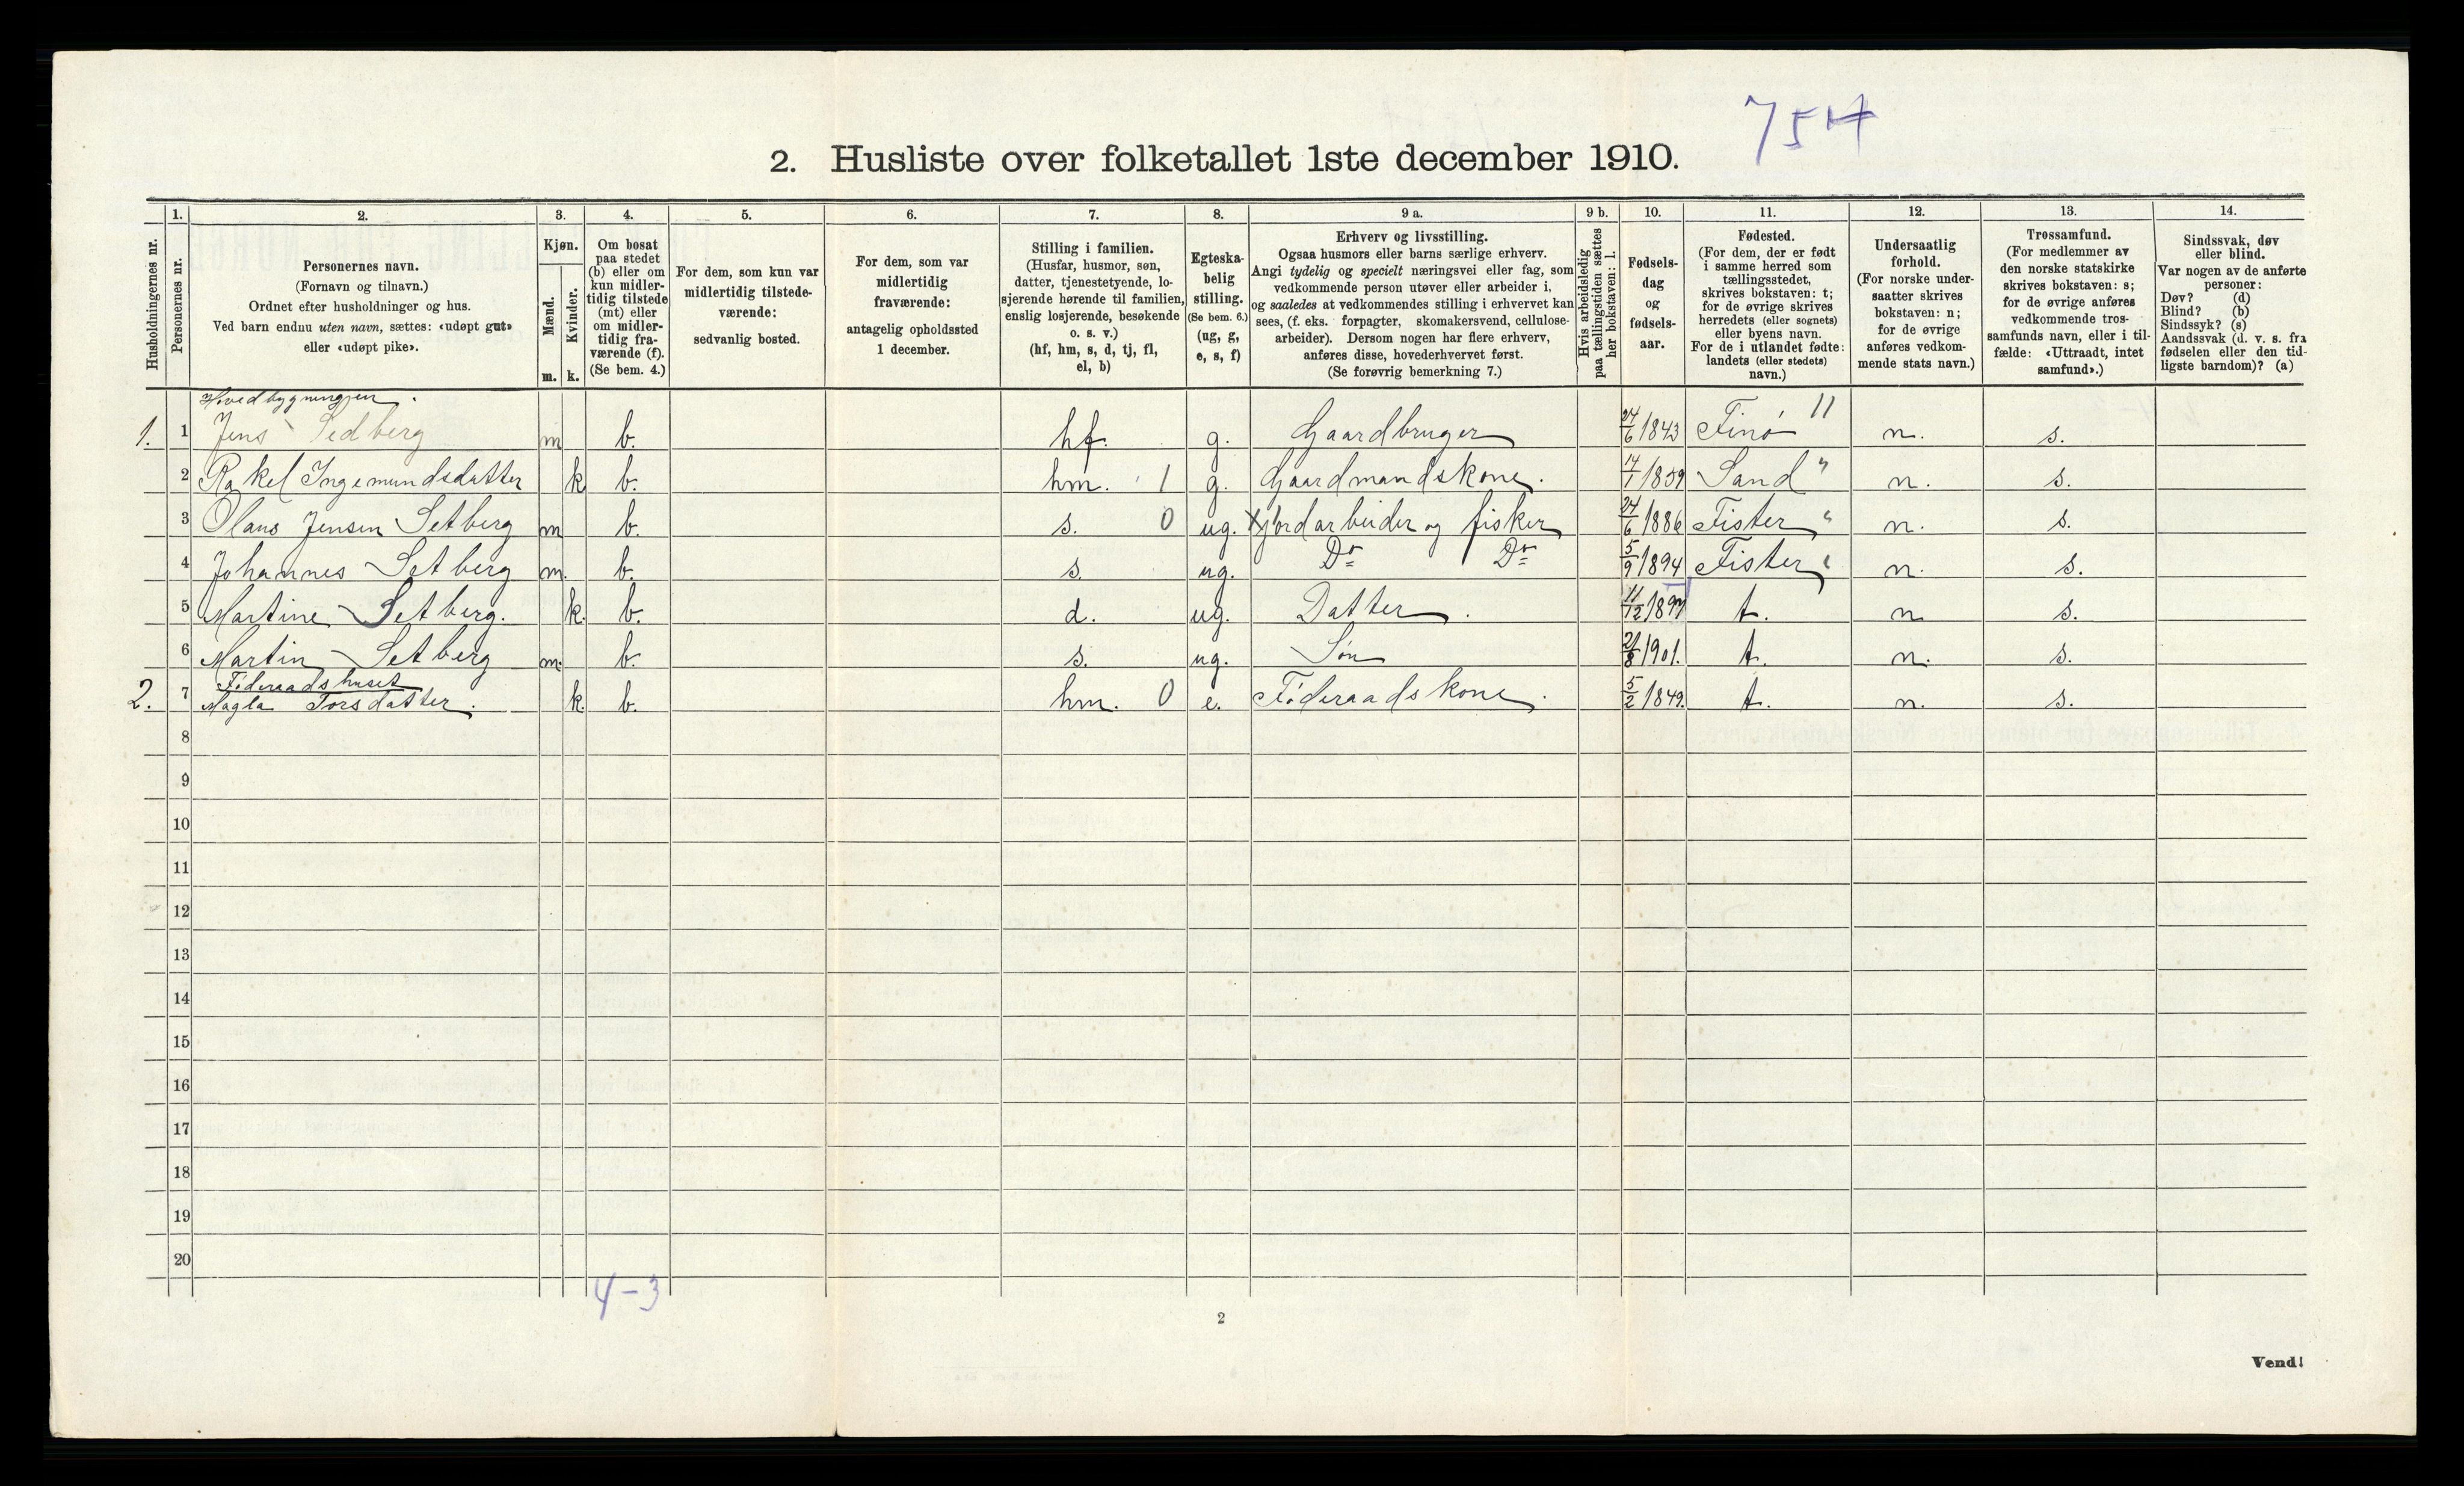 75 H
2. Husliste over folketallet 1ste december 1910.
Husholdningernes nr.
1. Personernes nr.
2. Personernes navn.
(Fornavn og tilnavn.)
Ordnet efter husholdninger og hus.
Ved barn endnu uten navn, sættes: «udøpt gut»
eller «udøpt pike».
3. Kjøn.
Mænd. m.
Kvinder. k.
4. Om bosat
paa stedet
(b) eller om
kun midler-
tidig tilstede
(mt) eller
om midler-
tidig fra-
værende (f).
(Se bem. 4.)
5. For dem, som kun var
midlertidig tilstede-
værende:
sedvanlig bosted.
6. For dem, som var
midlertidig
fraværende:
antagelig opholdssted
1 december.
7. Stilling i familien.
(Husfar, husmor, søn,
datter, tjenestetyende, lo-
sjerende hørende til familien,
enslig losjerende, besøkende
o. s. v.)
(hf, hm, s, d, tj, fl,
el, b)
8. Egteska-
belig
stilling.
(Se bem. 6.)
(ug, g,
e, s, f)
9 a. Erhverv og livsstilling.
Ogsaa husmors eller barns særlige erhverv.
Angi tydelig og specielt næringsvei eller fag, som
vedkommende person utøver eller arbeider i,
og saaledes at vedkommendes stilling i erhvervet kan
sees, (f. eks. forpagter, skomakersvend, cellulose-
arbeider). Dersom nogen har flere erhverv,
anføres disse, hovederhvervet først.
(Se forøvrig bemerkning 7.)
9 b. Hvis arbeidsledig
paa tællingstiden sættes
her bokstaven: l.
10. Fødsels-
dag
og
fødsels-
aar.
11. Fødested.
(For dem, der er født
i samme herred som
tællingsstedet,
skrives bokstaven: t;
for de øvrige skrives
herredets (eller sognets)
eller byens navn.
For de i utlandet fødte:
landets (eller stedets)
navn.)
12. Undersaatlig
forhold.
(For norske under-
saatter skrives
bokstaven: n;
for de øvrige
anføres vedkom-
mende stats navn.)
13. Trossamfund.
(For medlemmer av
den norske statskirke
skrives bokstaven: s;
for de øvrige anføres
vedkommende tros-
samfunds navn, eller i til-
fælde: «Uttraadt, intet
samfund».)
14. Sindssvak, døv
eller blind.
Var nogen av de anførte
personer:
Døv? (d)
Blind? (b)
Sindssyk? (s)
Aandssvak (d. v. s. fra
fødselen eller den tid-
ligste barndom)? (a)
Hovedbygningen.
1. 1 Jens Sedberg m b. hf. g. Gaardbruger 24/6 1843 Finø 11 n. s.
2 Rakel Ingemundsdatter k b. hm. 1 g. Gaardmandskone. 14/1 1859 Sand " n. s.
3 Olaus Jensen Setberg m b. s. 0 ug. x jordarbeider og fisker 24/6 1886 Fister " n. s.
4 Johannes Setberg m. b. s. ug. Do Do 5/9 1894 Fister " n. s.
5 Martine Setberg. k. b. d. ug. Datter. 11/12 1897 t. n s.
6 Martin Setberg m. b. s. ug. Søn 21/8 1901. t. n. s.
Føderaadshuset
2. 7 Magla Torsdatter. k. b. hm. 0 e. Føderaadskone. 5/2 1849. t. n. s.
8
9
10
11
12
13
14
15
16
17
18
19
20
4-3
2
Vend!